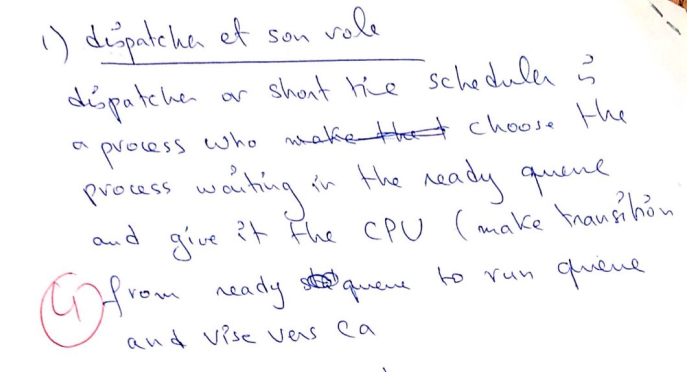 1) dispatcher et son role
dispatcher or short time scheduler is
a process who make that choose the
process waiting in the ready queue
and give it the CPU (make transition
4 from ready queue to run queue
and vise vers ca